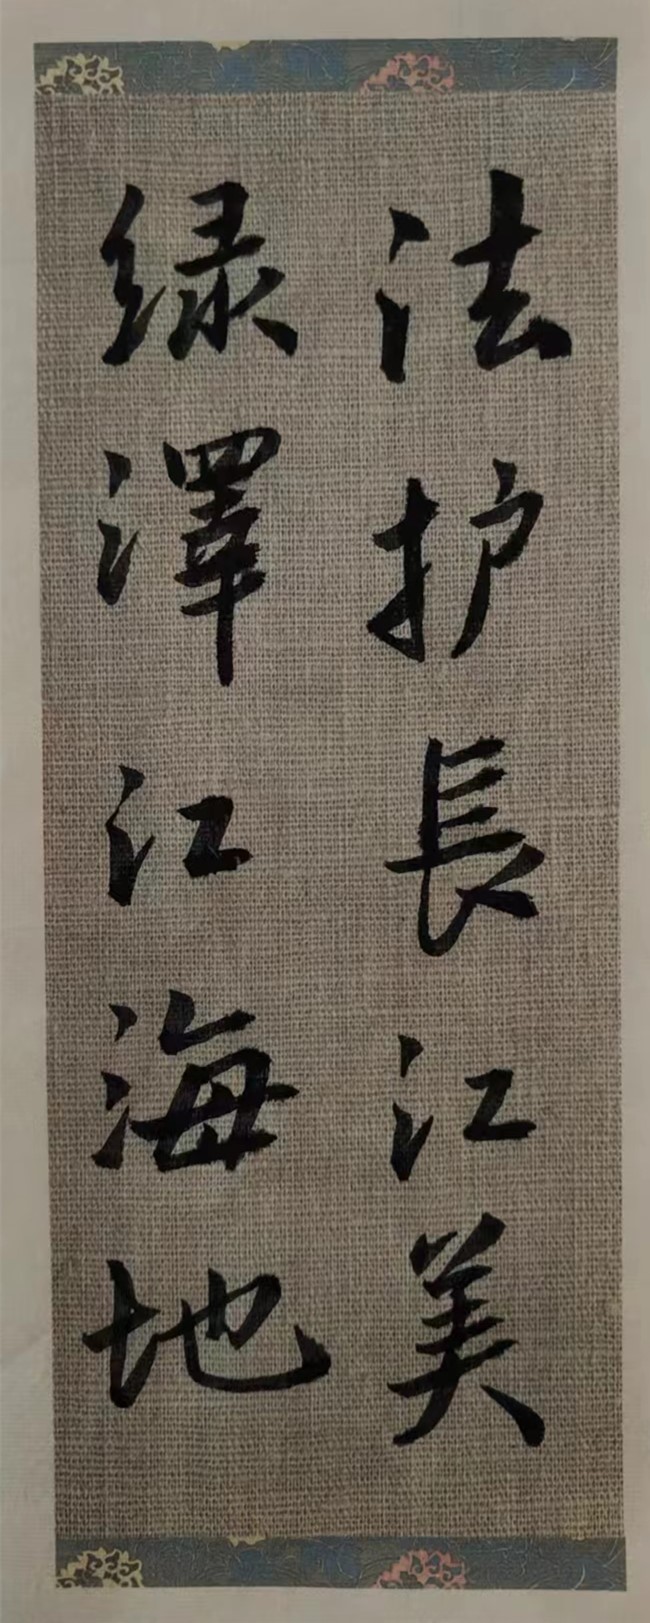 法护長江美
绿澤江海地